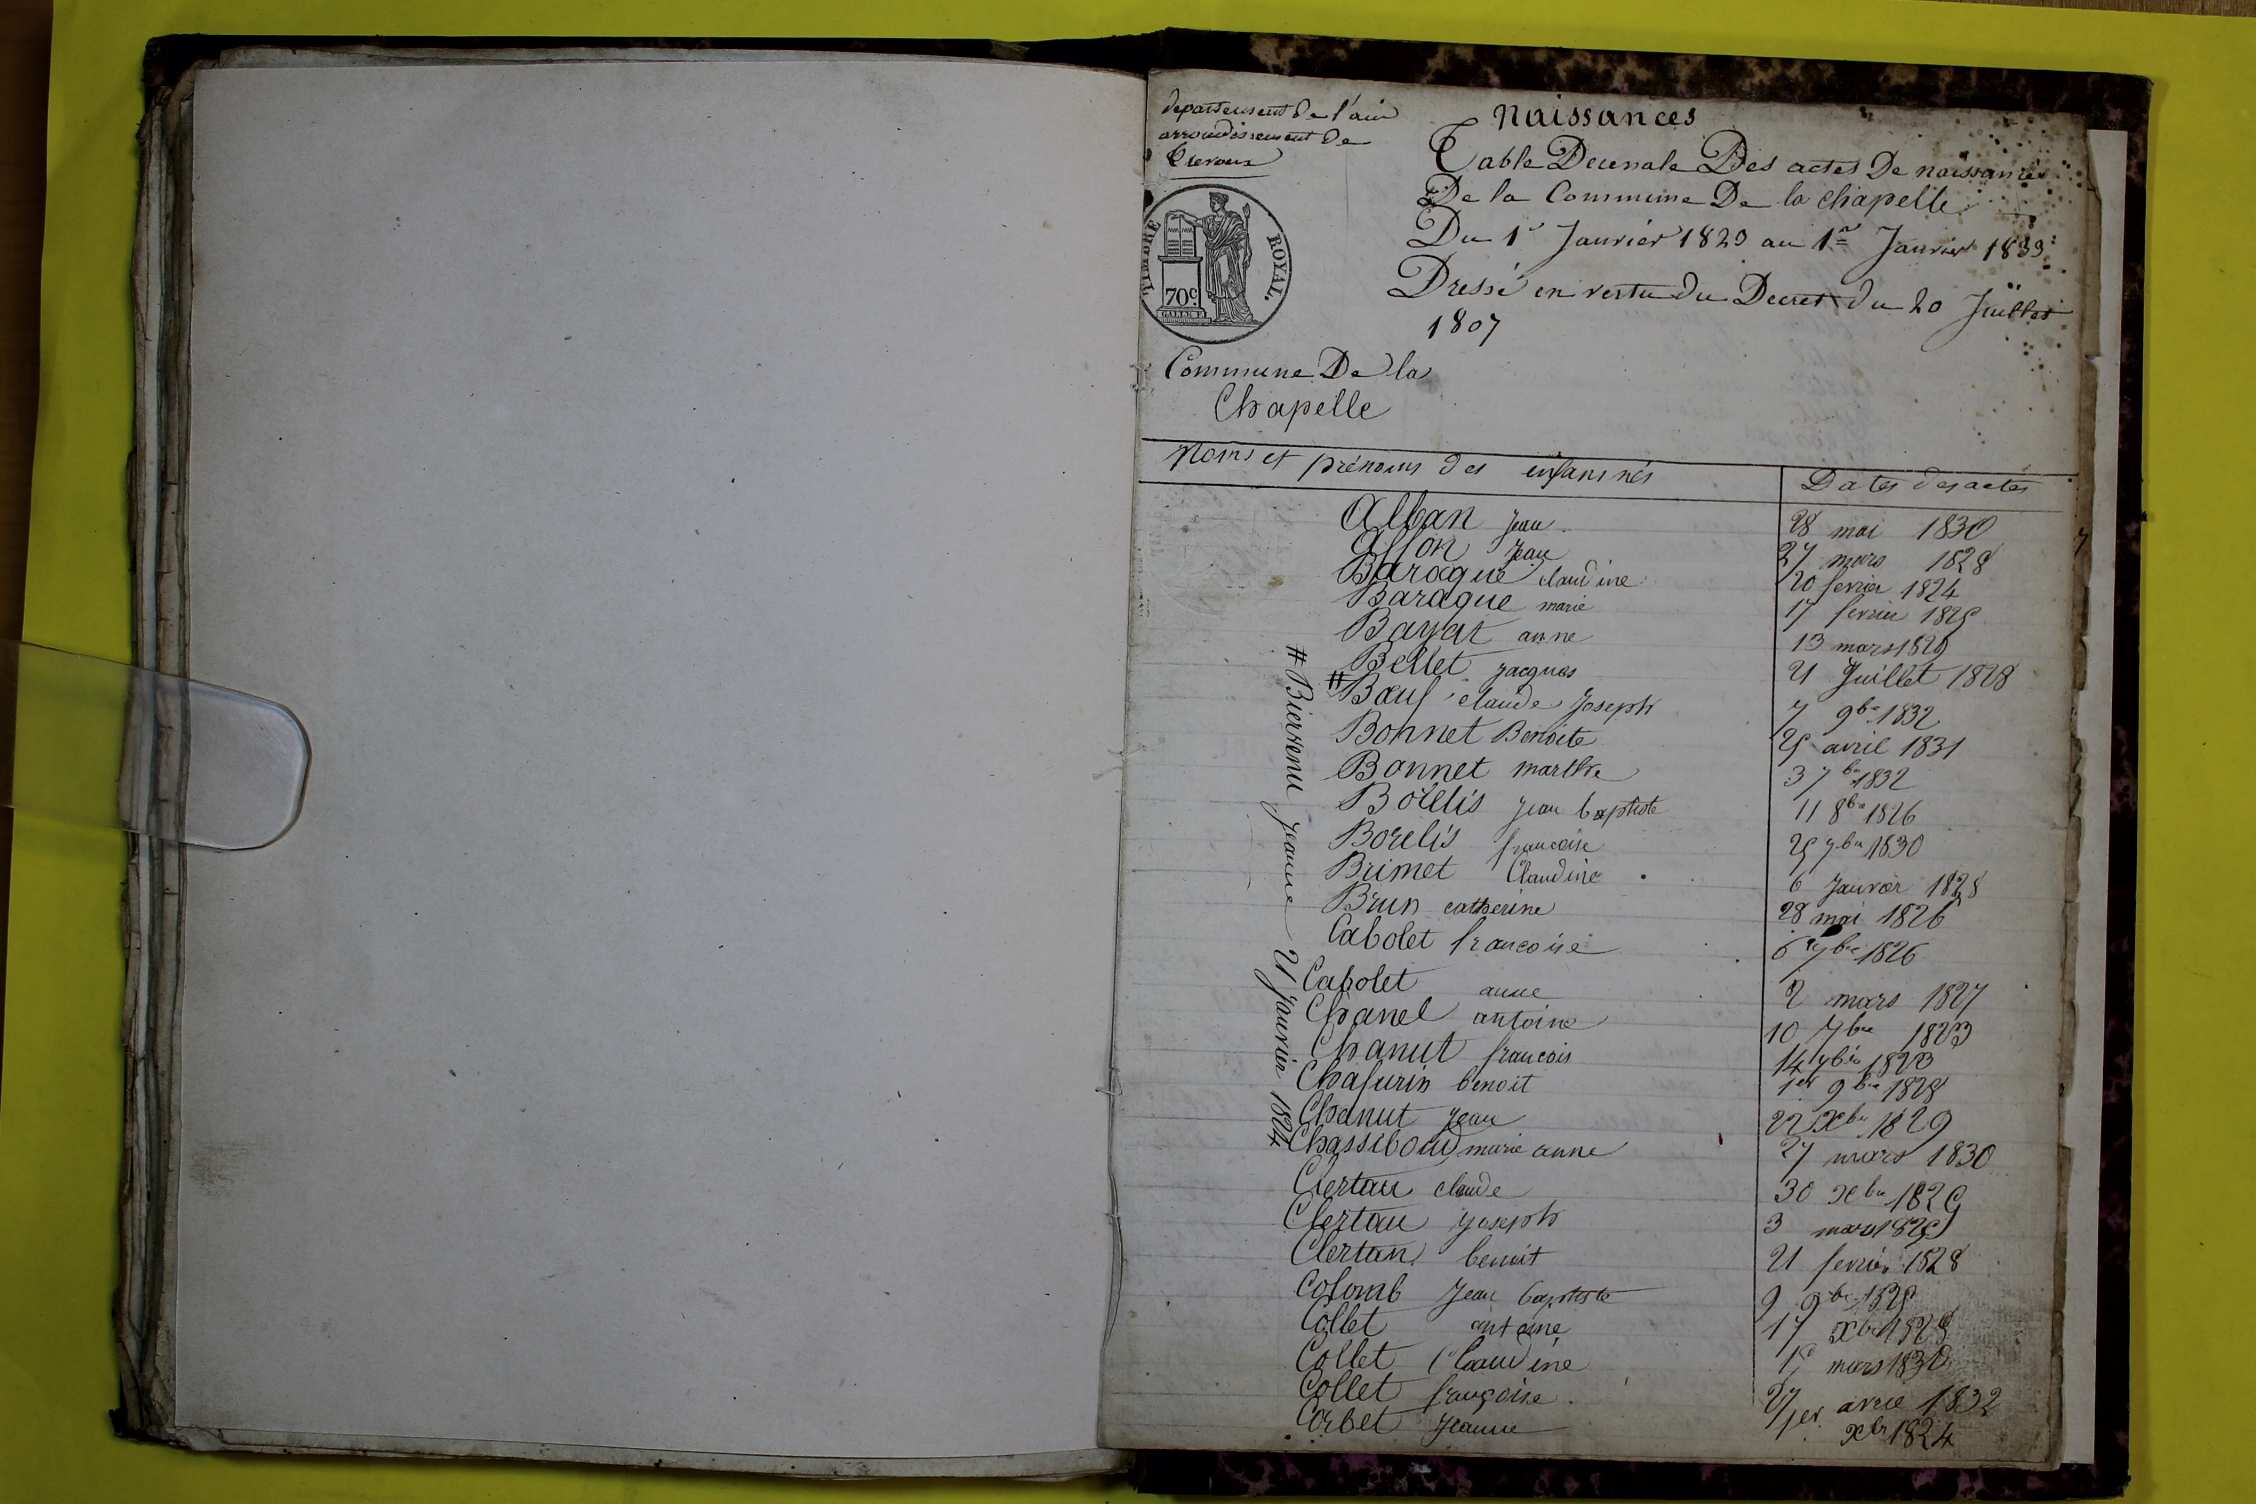 departement de l'ain
arrondissement de
Trevoux
TIMBRE ROYAL.
70c.
Commune De la
Chapelle
Naissances
Table Decennale Des actes De naissance
De la Commune De la Chapelle
Du 1er Janvier 1823 au 1er Janvier 1833
Dressé en vertu du Decret du 20 Juillet
1807
Noms et prénoms des enfans nés Dates des actes
Alban Jean 28 mai 1830
Jean 27 mars 1828
Baraque claudine 20 fevrier 1824
Baraque marie 17 fevrier 1825
Bayat anne 13 mars 1829
Bellet jacques 21 Juillet 1828
# Bœuf claude Joseph 7 9bre 1832
Bonnet Benoite 25 avril 1831
Bonnet marthe 3 7bre 1832
jean baptiste 11 8bre 1826
Borelis francoise 25 7bre 1830
Brimet Claudine 6 Janvier 1828
Brun catherine 28 mai 1826
Cabolet francoise 6 7bre 1826
Cabolet anne 2 mars 1827
Chanel antoine 10 7bre 1823
Chanut francois 14 7bre 1823
Chafurin benoit 1er 9bre 1828
Chanut Jean 22 Xbre 1829
marie anne 27 mars 1830
Clertan claude 30 Xbre 1825
Clertan joseph 3 mars 1825
Clertan benoit 21 fevrier 1828
Colomb Jean baptiste 9 9bre 1825
Collet antoine 17 Xbre 1828
Collet Claudine mars 1830
Collet françoise 27 avril 1832
Corbet Jeanne 1er Xbre 1824
# Bienvenu jeanne 21 janvier 1824